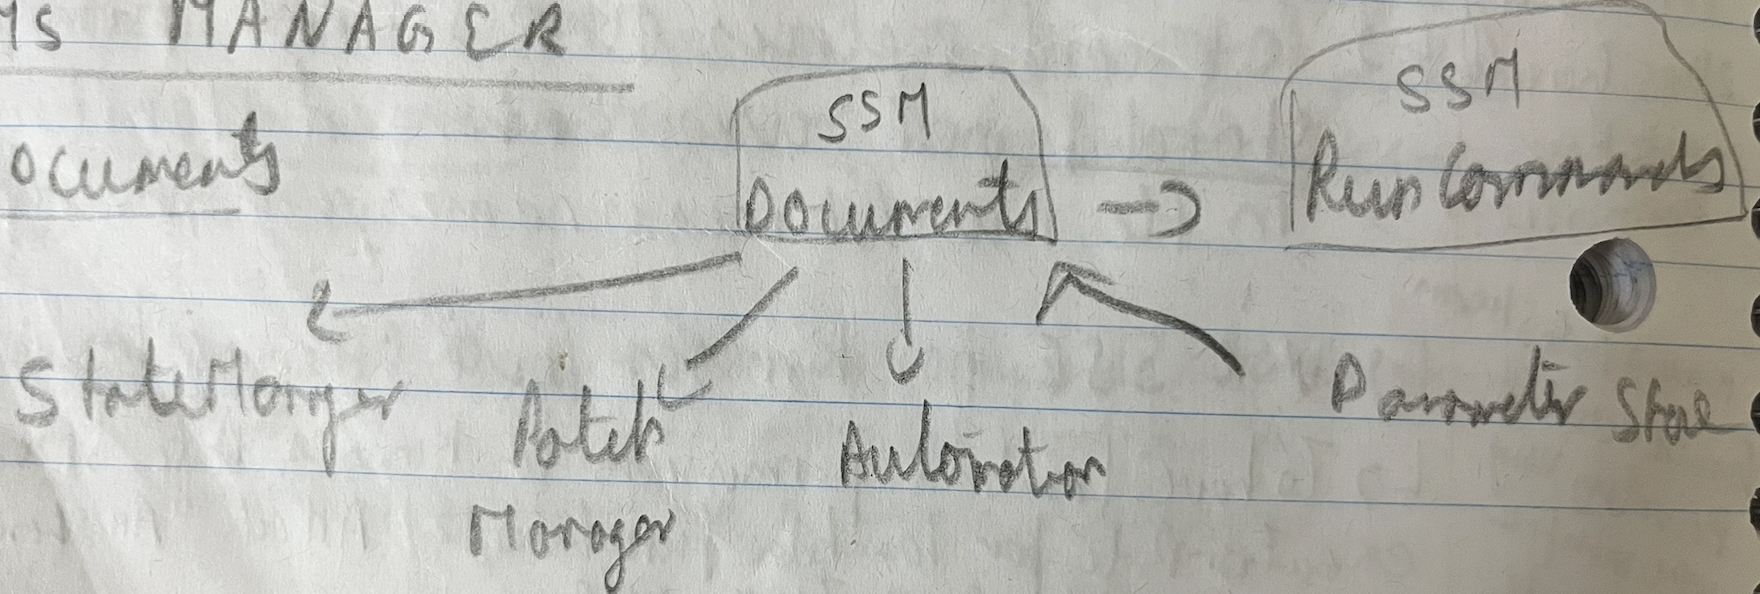 MS MANAGER
SSM
SSM
ocuments
Documents
Run Commands
State Manager
Patch
Manager
Automation
Parameter Store